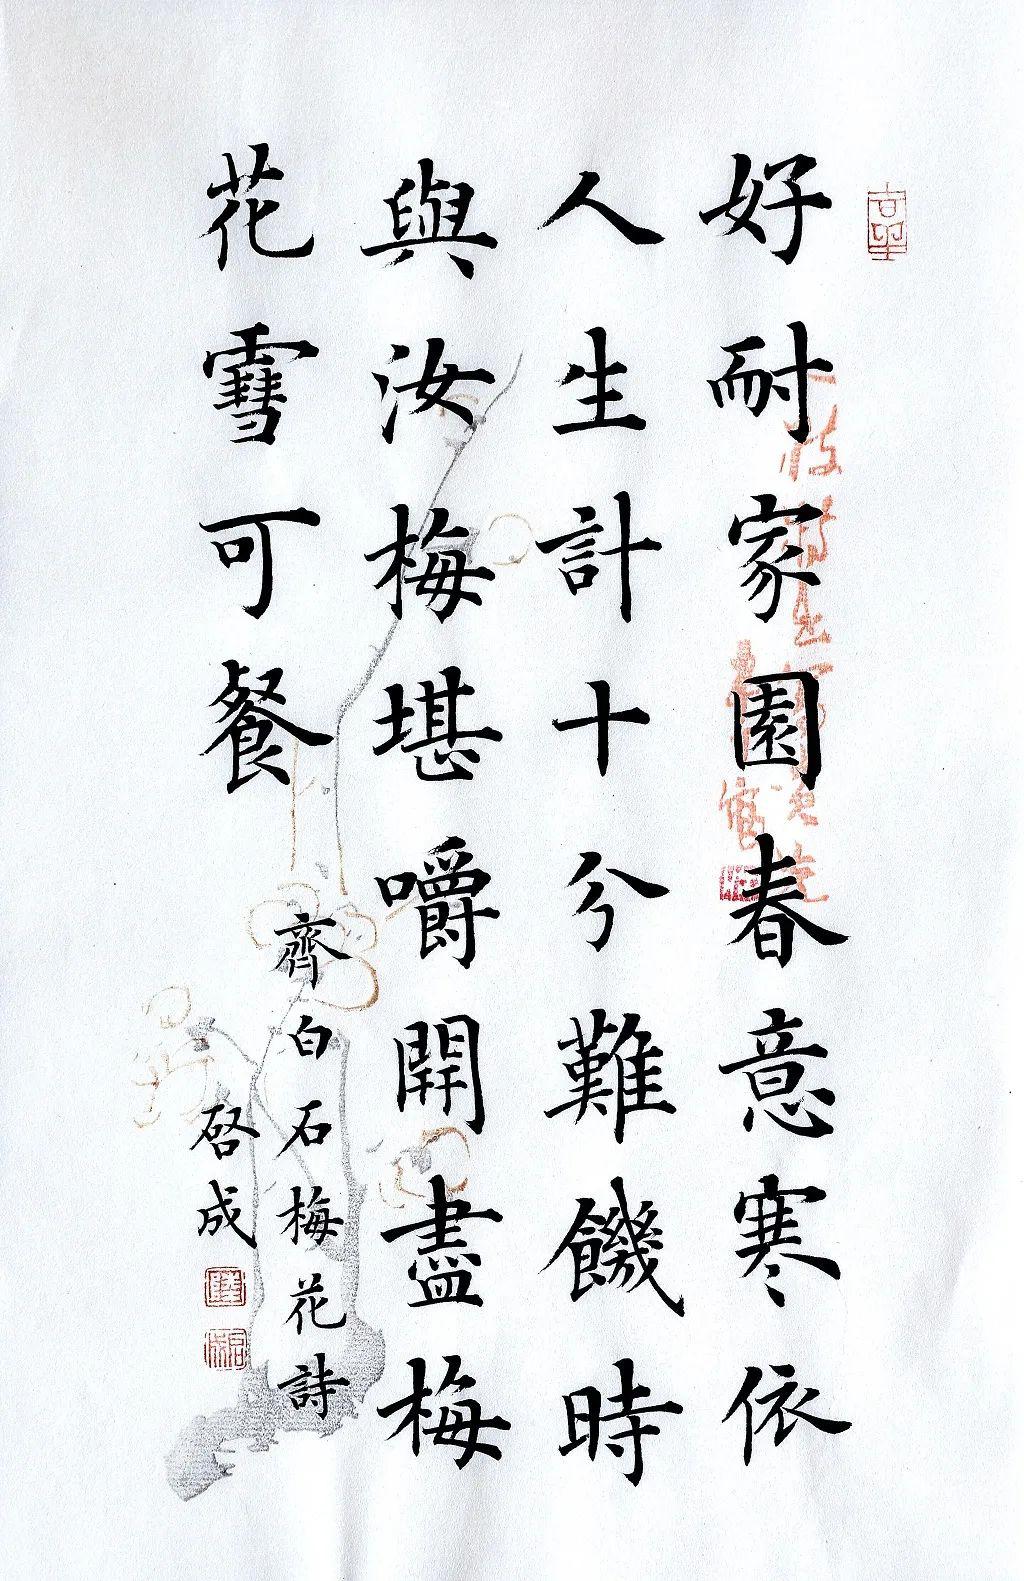 好耐家園春意寒依
人生計十兮難饑時
與汝梅堪嚼開盡梅
花雪可餐
齊白石梅花詩
啓成